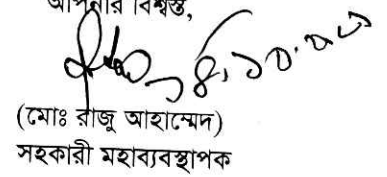 আপনার বিশ্বস্ত,
(মোঃ রাজু আহাম্মেদ)
সহকারী মহাব্যবস্থাপক